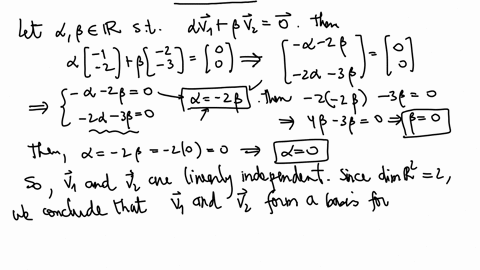 Let α, β ∈ ℝ s.t. αv⃗₁ + βv⃗₂ = 0⃗. Then
α[-1 -2] + β[-2 -3] = [0 0] ⟹ [-α-2β -2α-3β] = [0 0]
⟹ { -α-2β=0 → α=-2β. Then -2(-2β) -3β = 0
-2α-3β=0 ⟹ 4β-3β=0 ⟹ β=0
Then, α = -2β = -2(0) = 0 ⟹ α=0
So, v⃗₁ and v⃗₂ are linearly independent. Since dim ℝ² = 2,
we conclude that v⃗₁ and v⃗₂ form a basis for